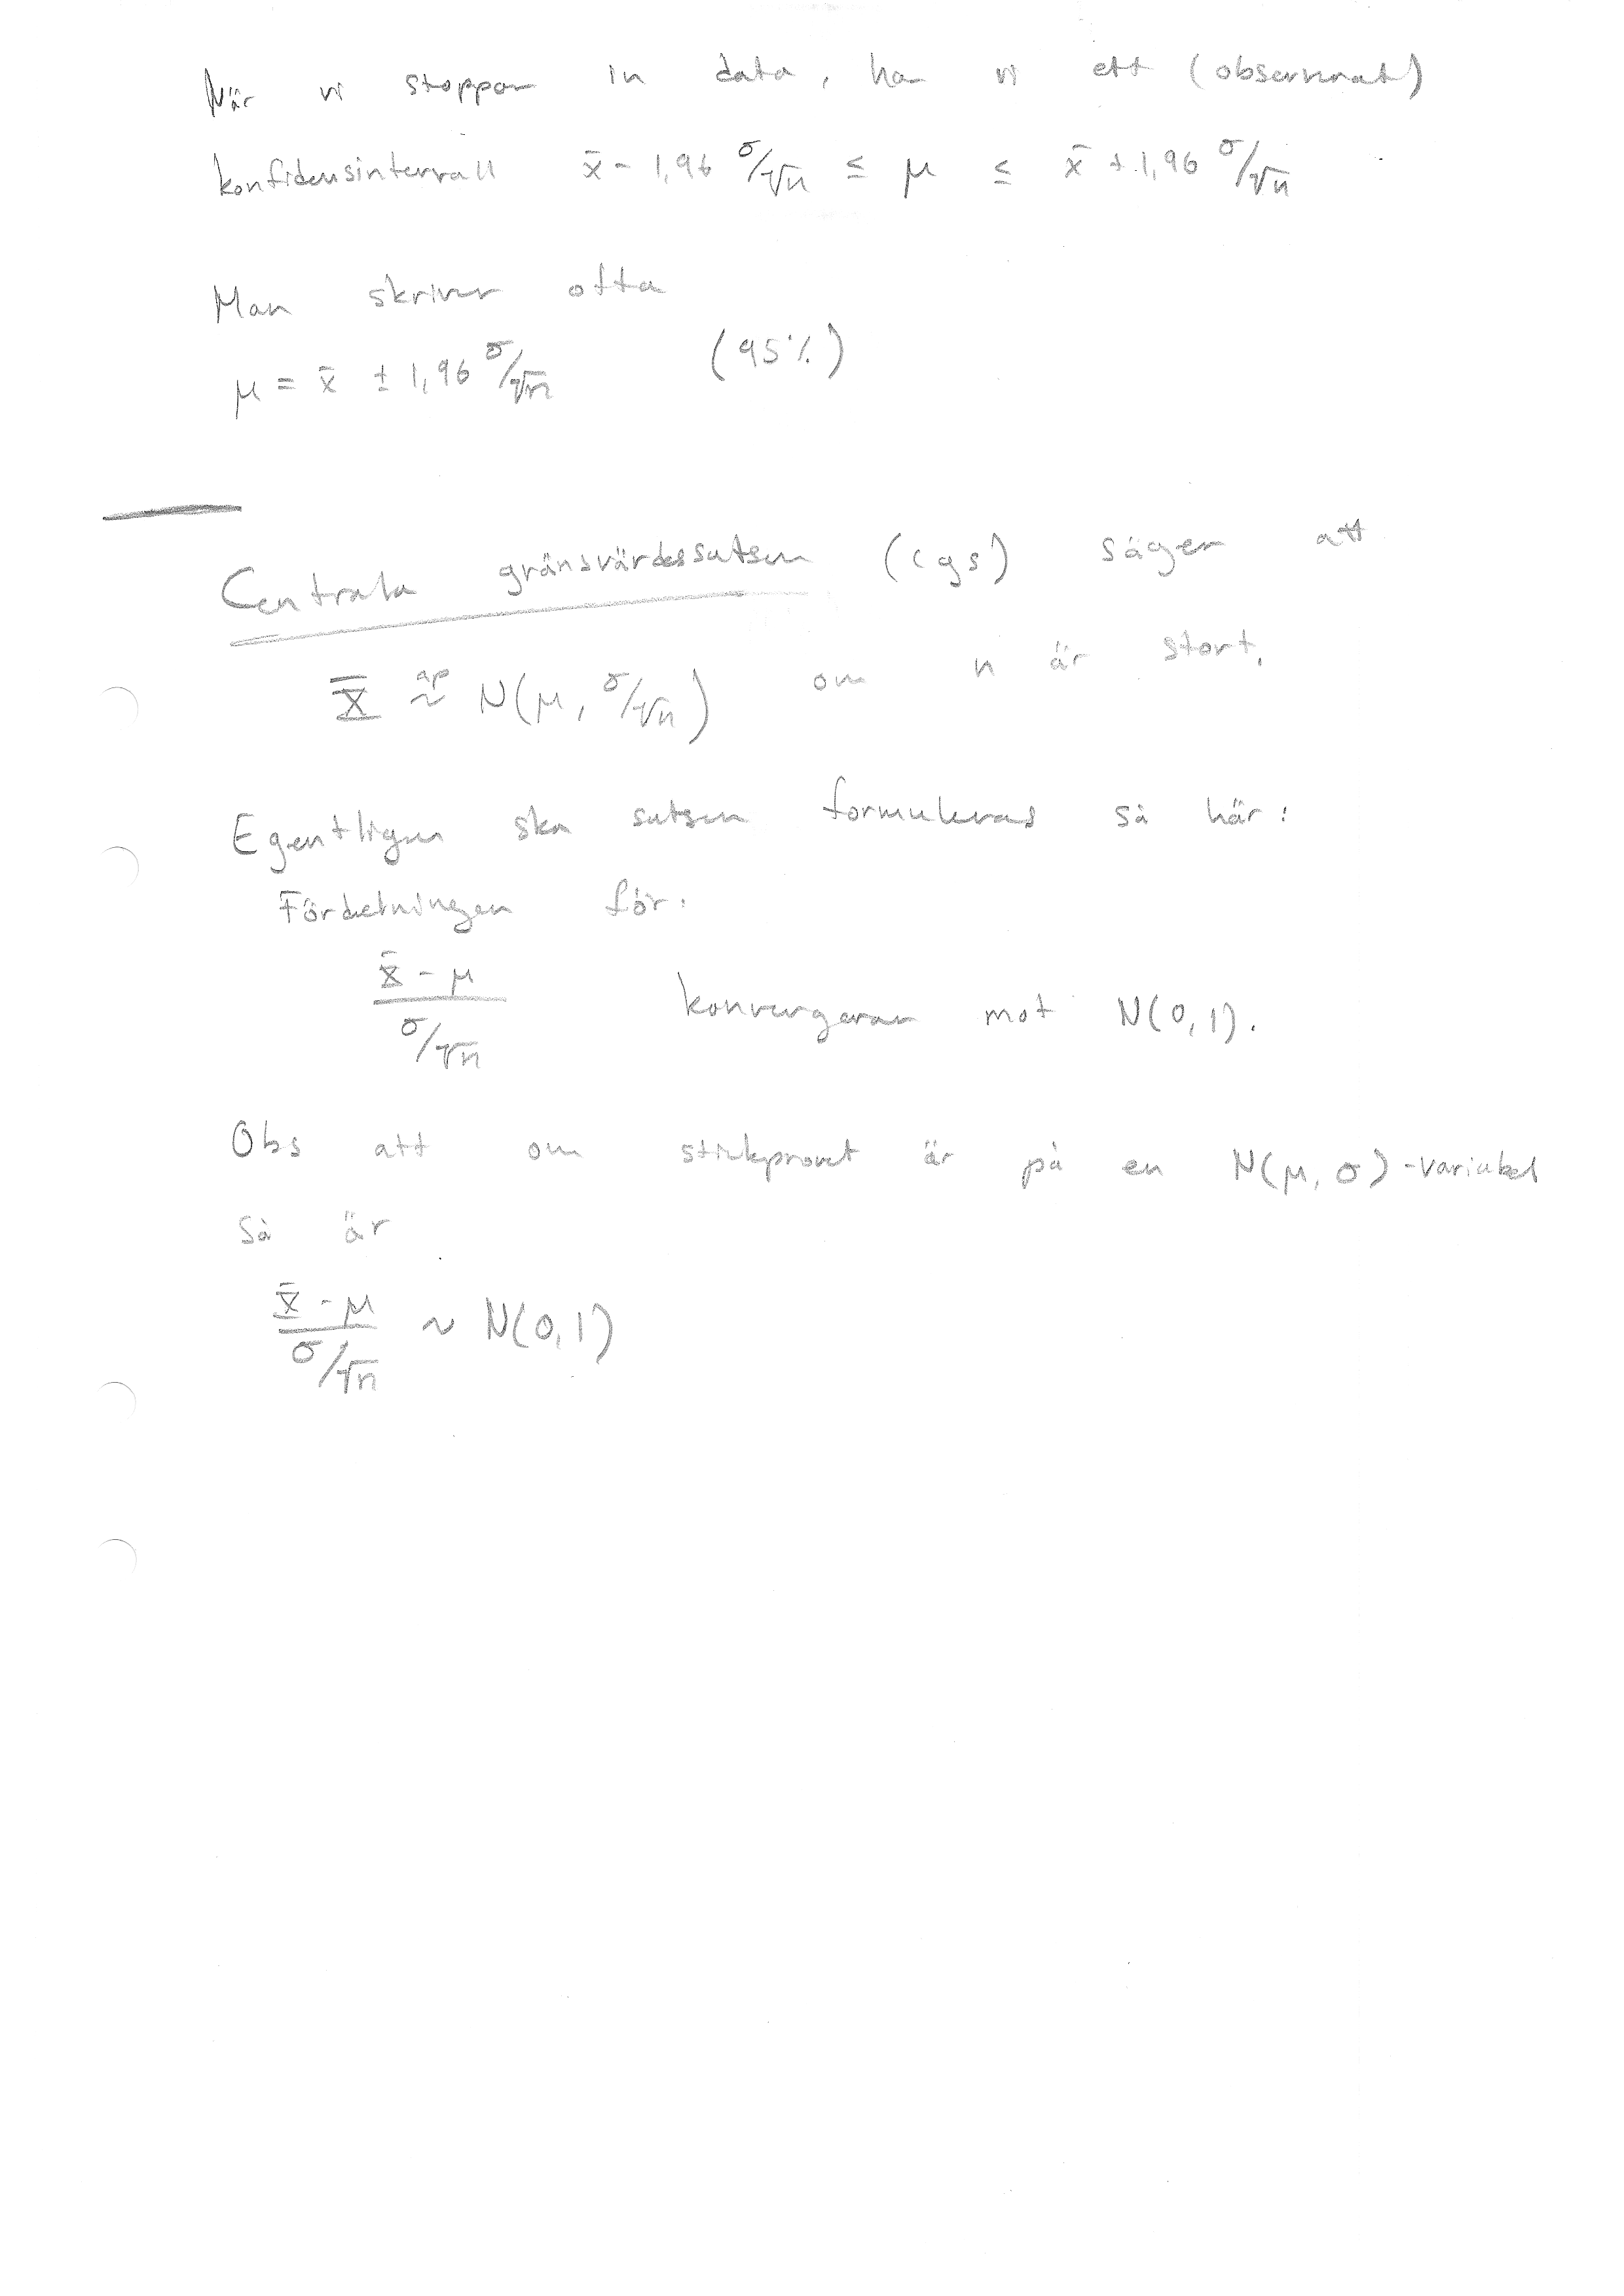 När vi stoppar in data, har vi ett (observerat)
konfidensintervall x̄ - 1,96 σ/√n ≤ μ ≤ x̄ + 1,96 σ/√n
Man skriver ofta
μ = x̄ ± 1,96 σ/√n (95%)
Centrala gränsvärdessatsen (cgs) säger att
X̄ ap~ N(μ, σ/√n) om n är stort.
Egentligen ska satsen formuleras så här:
Fördelningen för:
(X̄ - μ)/(σ/√n) konvergerar mot N(0,1).
Obs att om stickprovet är på en N(μ, σ)-variabel
så är
(X̄ - μ)/(σ/√n) ~ N(0,1)